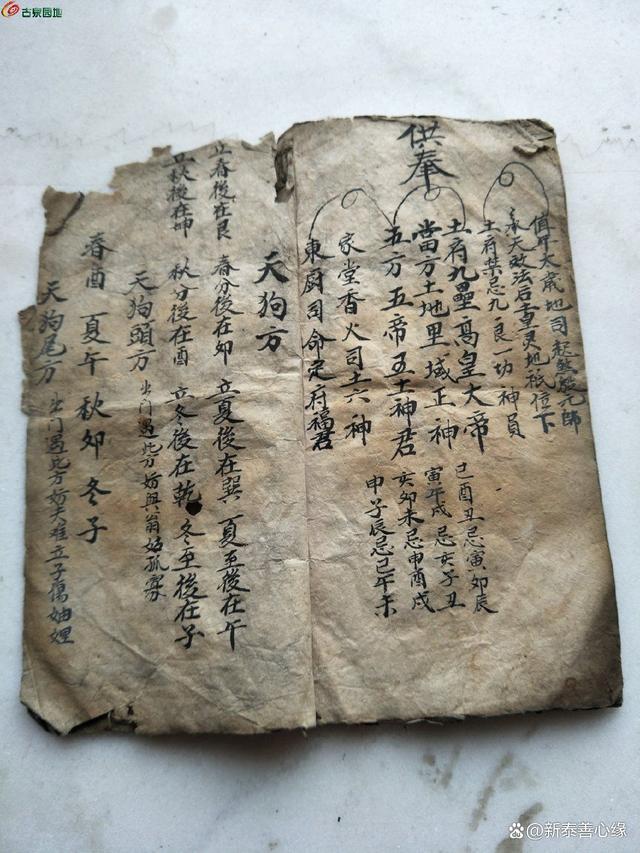 古泉园地
供奉
值年太歲地司起煞殷元帥
奉天敕法后土重灵地祇位下
土府禁忌九良一切神員
土府九壘高皇大帝
當方土地里域正神
五方五帝五土神君
家堂香火司土六神
東厨司命定府福君
巳酉丑忌寅卯辰
寅午戌忌亥子丑
亥卯未忌申酉戌
申子辰忌巳午未
天狗方
立春後在艮 春分後在卯 立夏後在巽 夏至後在午
立秋後在坤 秋分後在酉 立冬後在乾 冬至後在子
天狗頭方 出门遇此方妨與翁姑孤寡
春酉 夏午 秋卯 冬子
天狗尾方 出门遇此方妨夫难立子
新泰善心缘